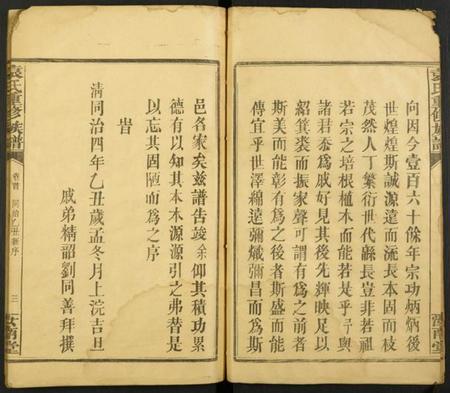 袁氏重修族譜
向因今壹百六十餘年宗功炳炳後
世煌煌斯誠源遠而流長本固而枝
茂然人丁繁衍世代縣長豈非若祖
若宗之培根植木而能若是乎予與
諸君忝爲戚好見其後先輝映足以
紹箕裘而振家聲可謂有爲之前者
斯美而能彰有爲之後者斯盛而能
傳宜乎世澤綿遠彌熾彌昌而爲斯
邑名家矣兹譜告竣余仰其積功累
德有以知其本木源源引之弗替是
以忘其固陋而爲之序
旹
清同治四年乙丑歲孟冬月上浣吉旦
戚弟精韶劉同善拜撰
袁氏重修族譜
卷首
同治乙丑新序
三
汝南堂